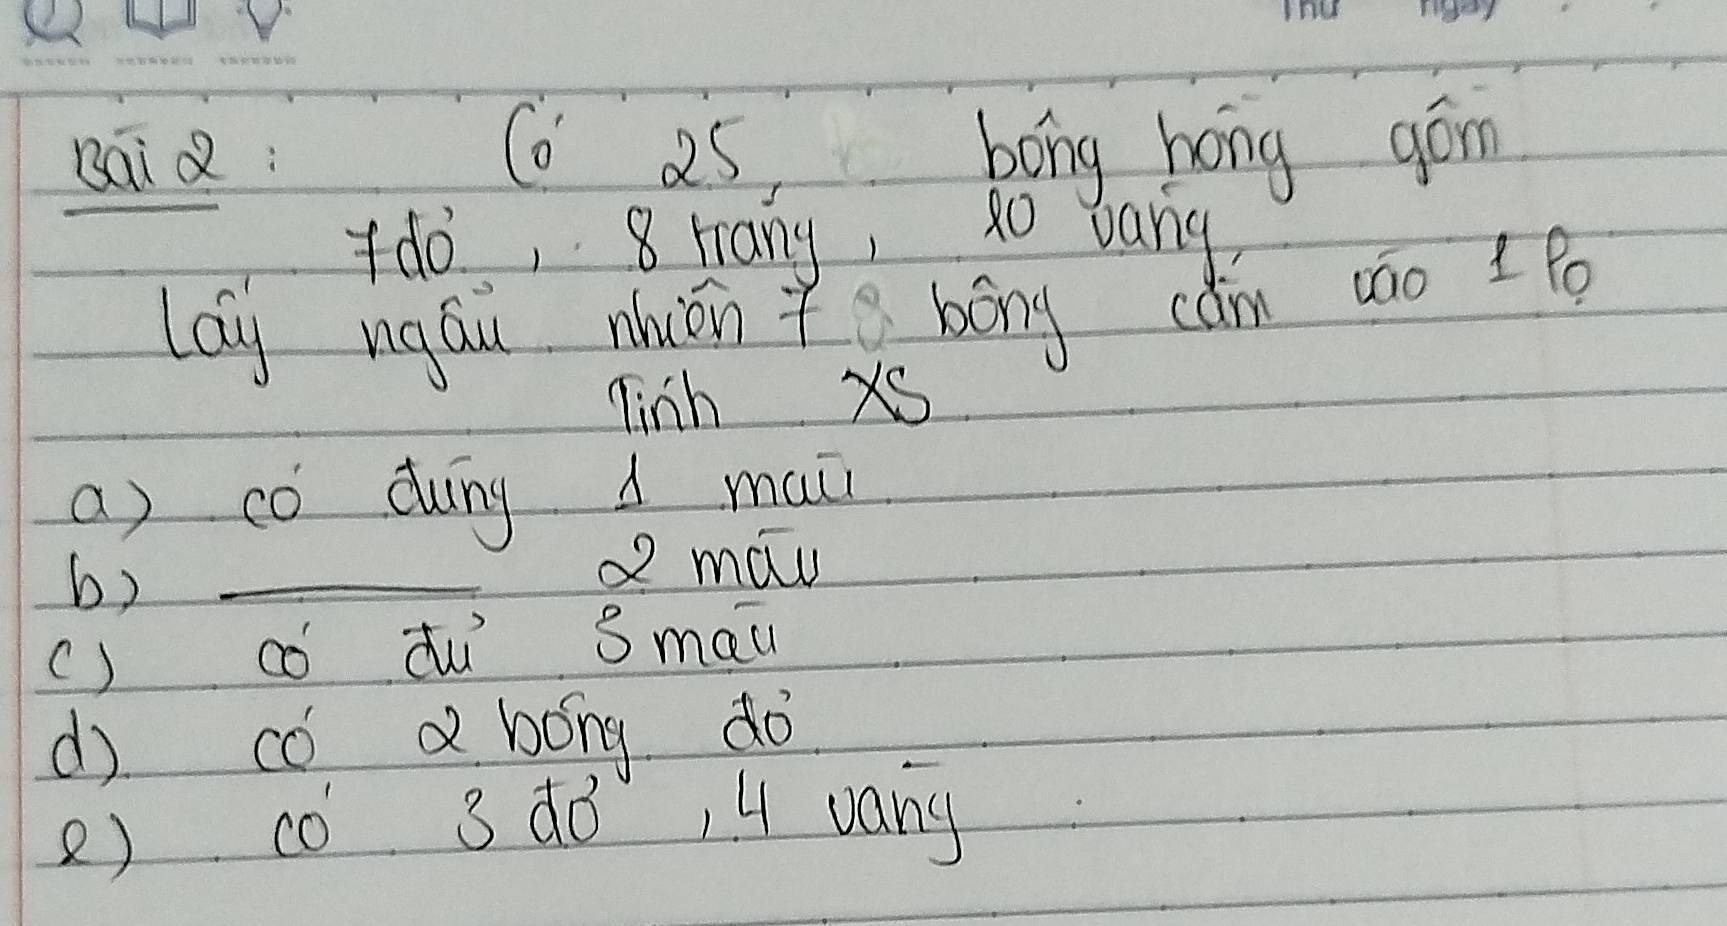 Thứ ngày
Bài 2 : Có 25 bông hồng gồm
7 đỏ, 8 trắng, 10 vàng
Lấy ngẫu nhiên 7 bông cắm vào 1 lọ
Tính XS
a) có đúng 1 màu
b) ——— 2 màu
c) có đủ 3 màu
d) có 2 bông đỏ
e) có 3 đỏ, 4 vàng